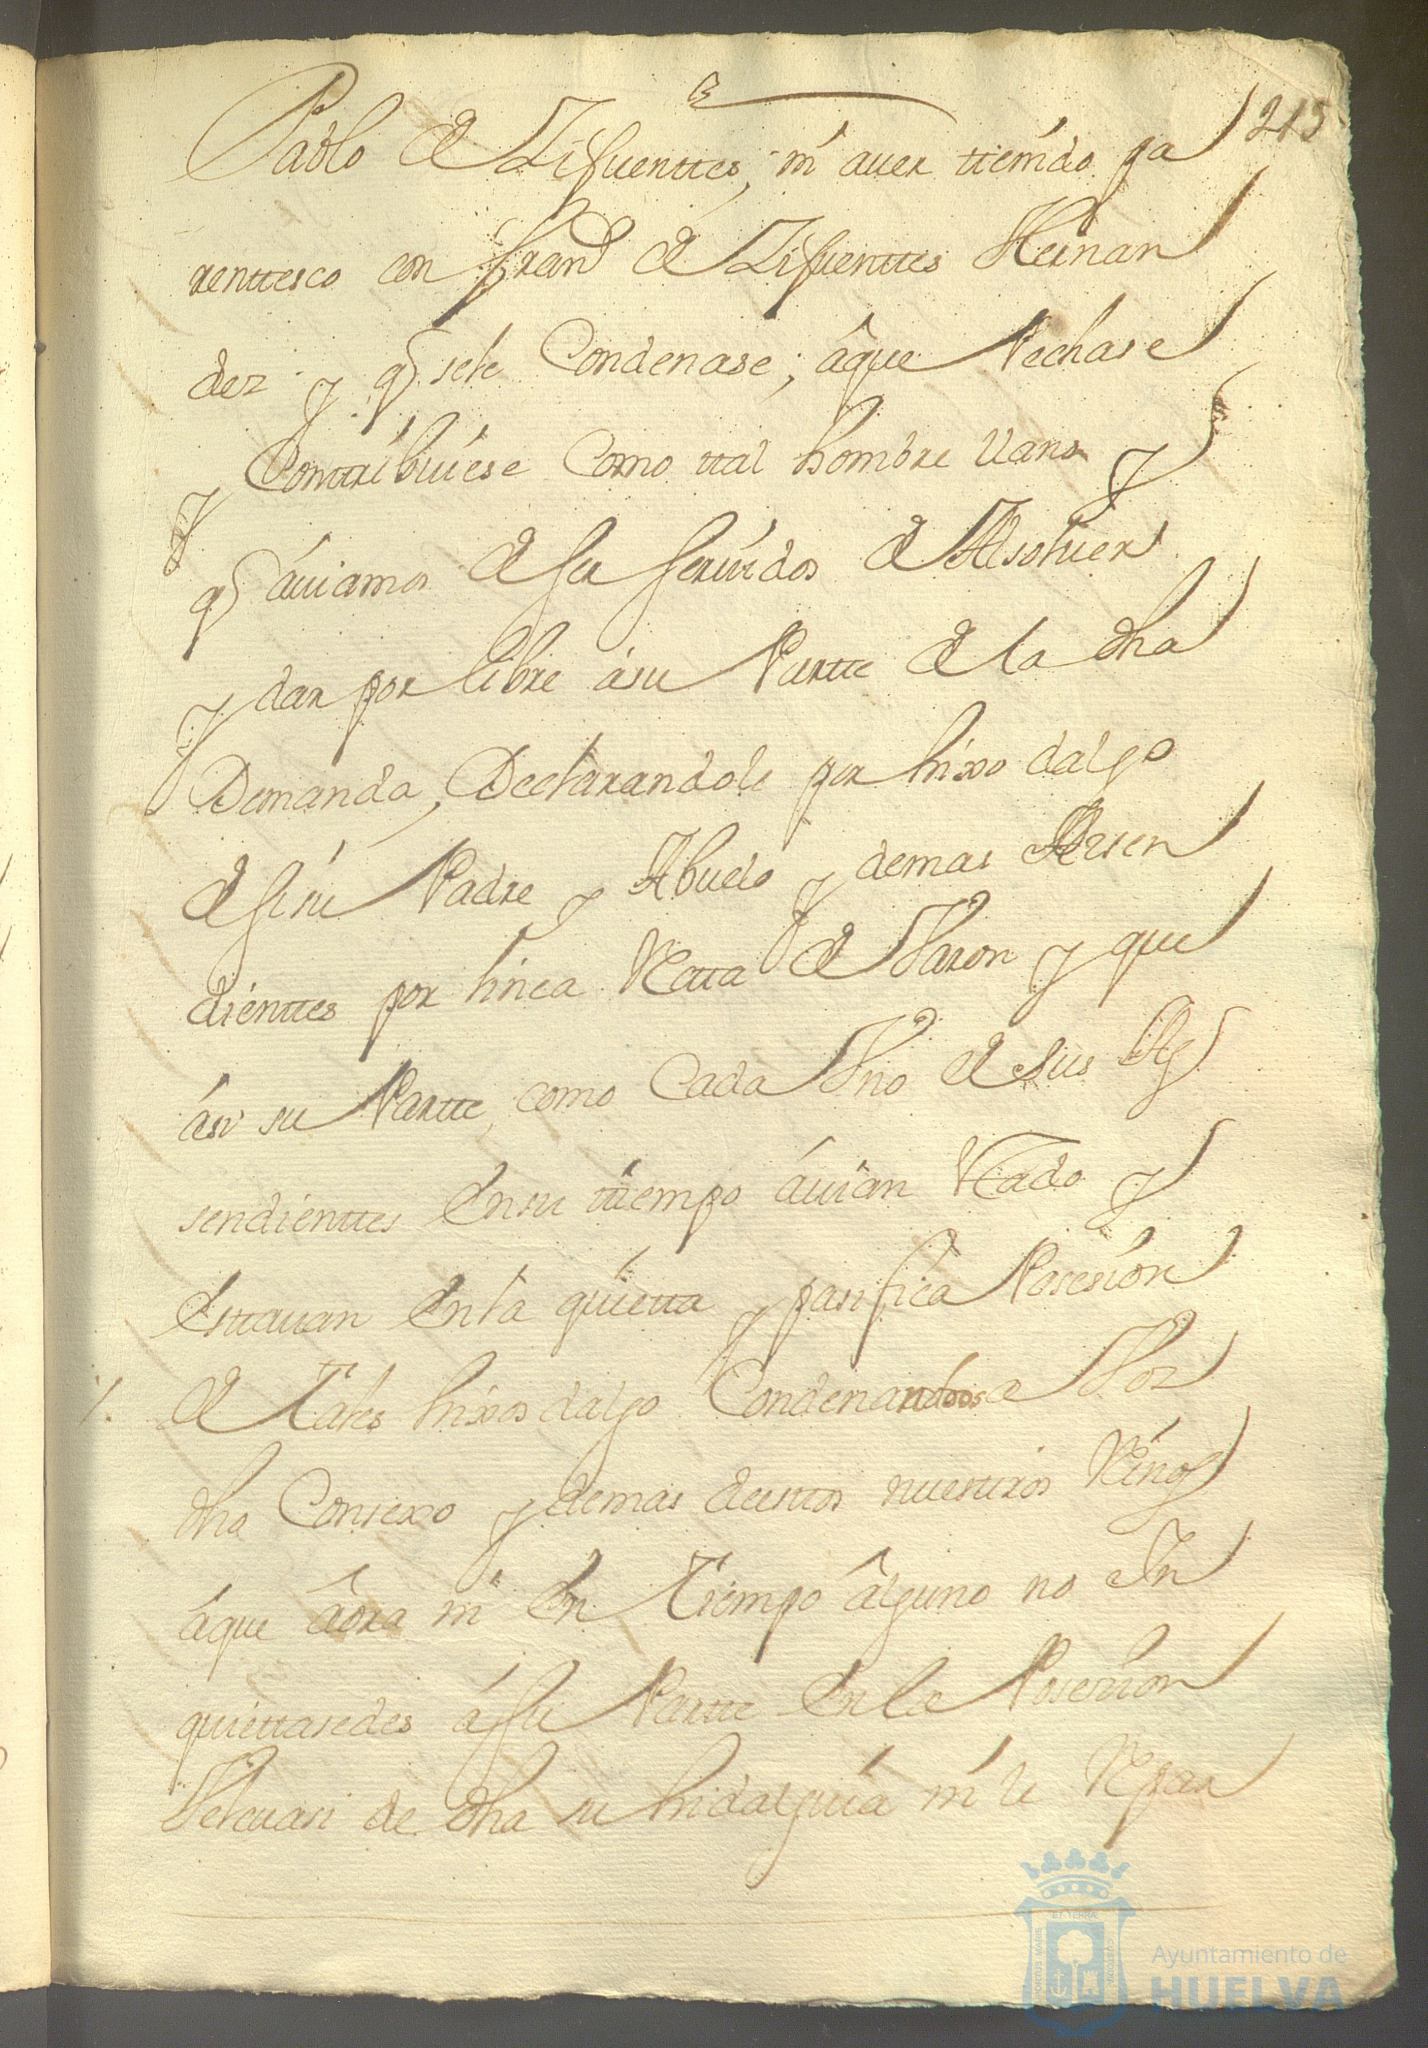 3
215
Pablo de Zifuenttes, ni auer ttenido pa
renttesco con fran.co de Zifuenttes Hernan
dez y q̃ sele Condenase, áque Pechase
y Conttribuiese Como ttal hombre llano y
q̃ áuiamos de ser seruidos de Absoluer
y dar por libre ásu Partte de la dha
Demanda, Declarandole por hixo dalgo
de si su Padre y Abuelo y demas Aszen
dienttes por linea Rectta de Varon y que
ási su Partte, como Cada Vno de sus As
sendienttes En su ttiempo áuian Estado y
Esttauan En la quietta y pasifica Posesion
de Tales hixos dalgo Condenandosea Vos
dho Consexo y demas de esttos nuesttros Reinos
áque áora ni En Tiempo álguno no In
quiettasedes á su Partte En la Posesion
Velcuasi de dha su hidalguia ni le Repar
Ayuntamiento de
HUELVA